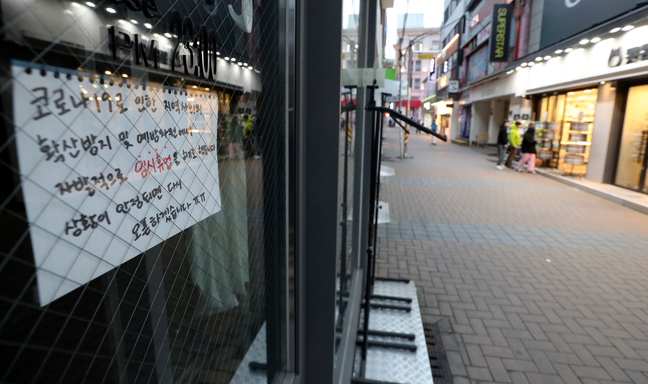 PM 23:00
코로나19로 인한 지역 사회의
확산방지 및 예방차원에서
자발적으로 임시휴업을 하려고 합니다
상황이 안정되면 다시
오픈하겠습니다
SUPERSTAR